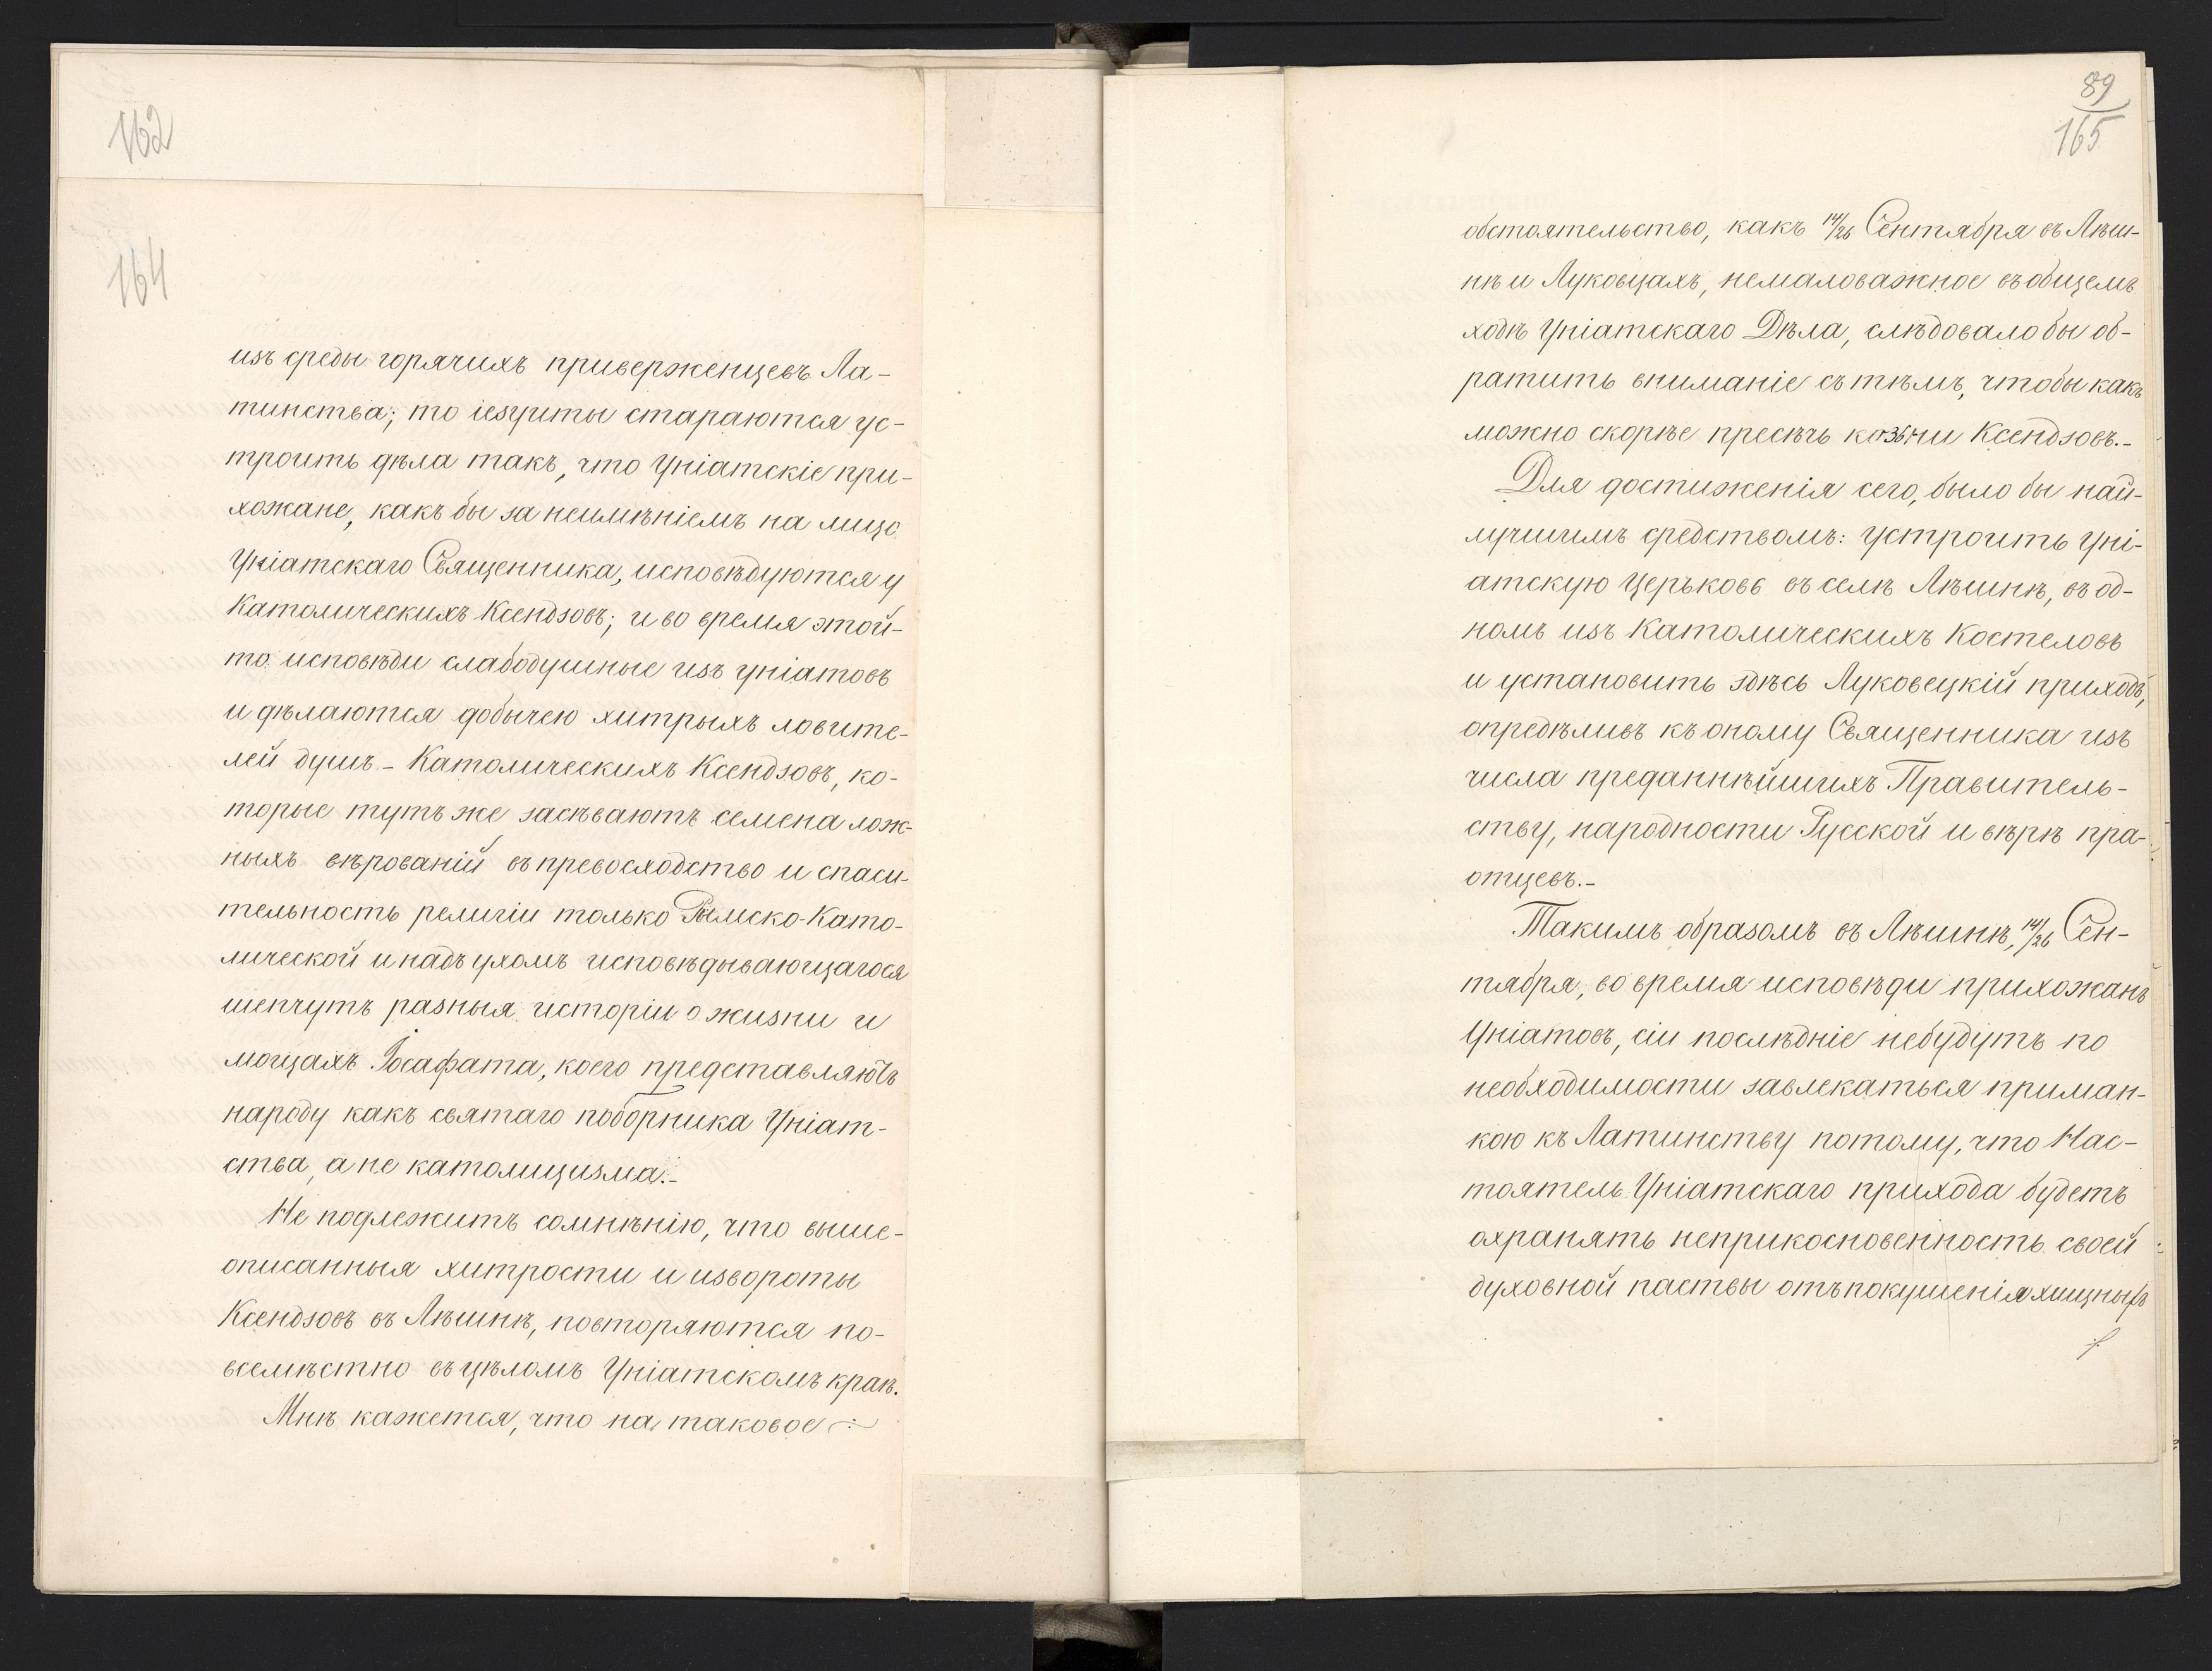 162
164
изъ среды горячихъ приверженцевъ Ла-
тинства; то іезуиты стараются ус-
троить дѣла такъ, что Уніатскіе при-
хожане, какъ бы за неимѣніемъ на лицо
Уніатскаго Священника, исповѣдуются у
Католическихъ Ксендзовъ; и во время этой-
то исповѣди слабодушные изъ уніатовъ
и дѣлаются добычею хитрыхъ ловите-
лей душъ - Католическихъ Ксендзовъ, ко-
торые тутъ же засѣваютъ семена лож-
ныхъ вѣрованій въ превосходство и спаси-
тельность религіи только Рымско-Като-
лической и надъ ухомъ исповѣдывающагося
шепчутъ разныя исторіи о жизни и
мощахъ Іосафата, коего представляютъ
народу какъ святаго поборника Уніат-
ства, а не католицизма.-
Не подлежитъ сомнѣнію, что выше-
описанныя хитрости и извороты
Ксендзовъ въ Лѣшнѣ, повторяются по-
всемѣстно въ цѣломъ Уніатскомъ краѣ.
Мнѣ кажется, что на таковое
89
165
обстоятельство, какъ 14/26 Сентября въ Лѣш-
нѣ и Луковцахъ, немаловажное въ общемъ
ходѣ Уніатскаго Дѣла, слѣдовало бы об-
ратить вниманіе съ тѣмъ, чтобы какъ
можно скорѣе пресѣчь козьни Ксендзовъ.-
Для достиженія сего, было бы най-
лучшимъ средствомъ: устроить Уні-
атскую Церьковь въ селѣ Лѣшнѣ, въ од-
номъ изъ Католическихъ Костеловъ
и установить здѣсь Луковецкій приходъ,
опредѣливъ къ оному Священника изъ
числа преданнѣйшихъ Правитель-
ству, народности Русской и вѣрѣ пра-
отцевъ.-
Такимъ образомъ въ Лѣшнѣ, 14/26 Сен-
тября, во время исповѣди прихожанъ
Уніатовъ, сіи послѣдніе небудутъ по
необходимости завлекаться приман-
кою къ Латинству потому, что Нас-
тоятель Уніатскаго прихода будетъ
охранять неприкосновенность своей
духовной паствы отъ покушенія хищныхъ